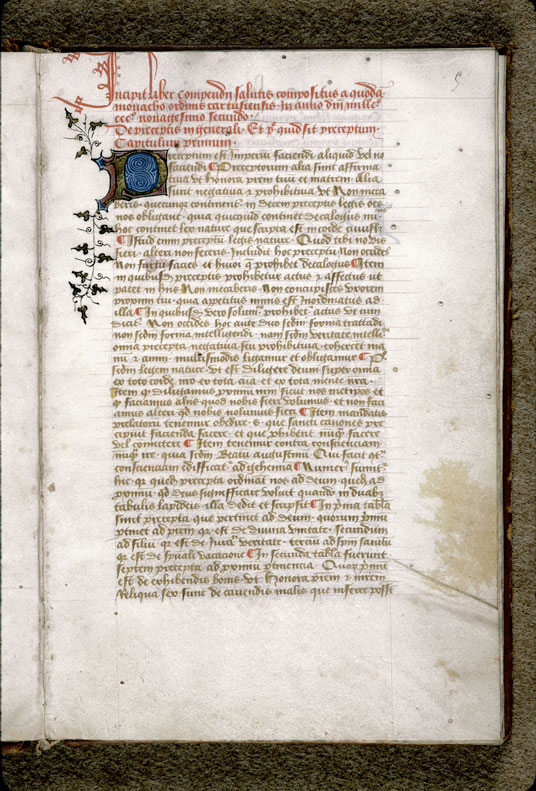 Incipit liber compendii salutis compositus a quoda
monacho ordinis cartusiensis in anno dni mille
ccc nonagesimo secundo
De preceptis in generali Et p quid sit preceptum
Capitulum primum
Preceptum est Imperiu faciendi aliquid vel no
faciendi Preceptorum alia sunt affirma
tiua vt honora prem tuu et matrem Alia
sunt negatiua et prohibitiua vt Non mecha
beris quecunq continent in decem preceptis legis oes
nos obligant quia quicquid continet decalogus in
hoc continet lex nature que scripta est in corde
Istud enim preceptu legis nature Quod tibi no vis
fieri alteri non feceris Includit hoc preceptu Non occides
Non furtu facies et huior q prohibet decalogus Item
in quibusda preceptis prohibetur actus et affectus vt
patet in his Non mecaberis Non concupisces vxorem
proximi tui quia apetitus nimis est Inordinatus ad
illa In quibusda vero solum prohibet actus vt cum
dicit Non occides hoc autem duo scdm forma tradendi
non scdm forma intelligendi nam scdm veritate intelle
omnia precepta negatiua seu prohibitiua cohercet ma
nu et animu multismodis ligamur et obligamur P
scdm legem nature vt est diligere deum super omnia
ex toto corde mo ex tota aia et ex tota mente nra
Item q diligamus proximu nrm sicut nos metipos et
q faciamus aliis quod nobis fieri volumus et non faci
amus alteri qd nobis nolumus fieri Item mandatis
prelatoru tenemur obedire s que sancti canones pre
cipiut facienda facere et que phibent nuq facere
vel comittere Item tenemur contra conscienciam
nuq ire quia scdm Beatu augustinu Qui facit
conscienciam edifficat ad gehenna Numerus sumit
hic q queda precepta ordinat nos ad deum queda ad
proximu qd deus significare voluit quando in duabz
tabulis lapideis illa dedit et scripsit In prima tabla
sunt precepta que pertinet ad deum quorum primu
ptinet ad prem q est de diuina vnitate secundum
ad filiu q est de veritate terciu ad spm sanctu
q est de spuali vacatione In secunda tabla fuerunt
septem precepta ad proximu ptinencia Quor primu
est de exhibendis bonis vt honora prem et mrem
Reliqua sex sunt de cauendis malis que inferre posset